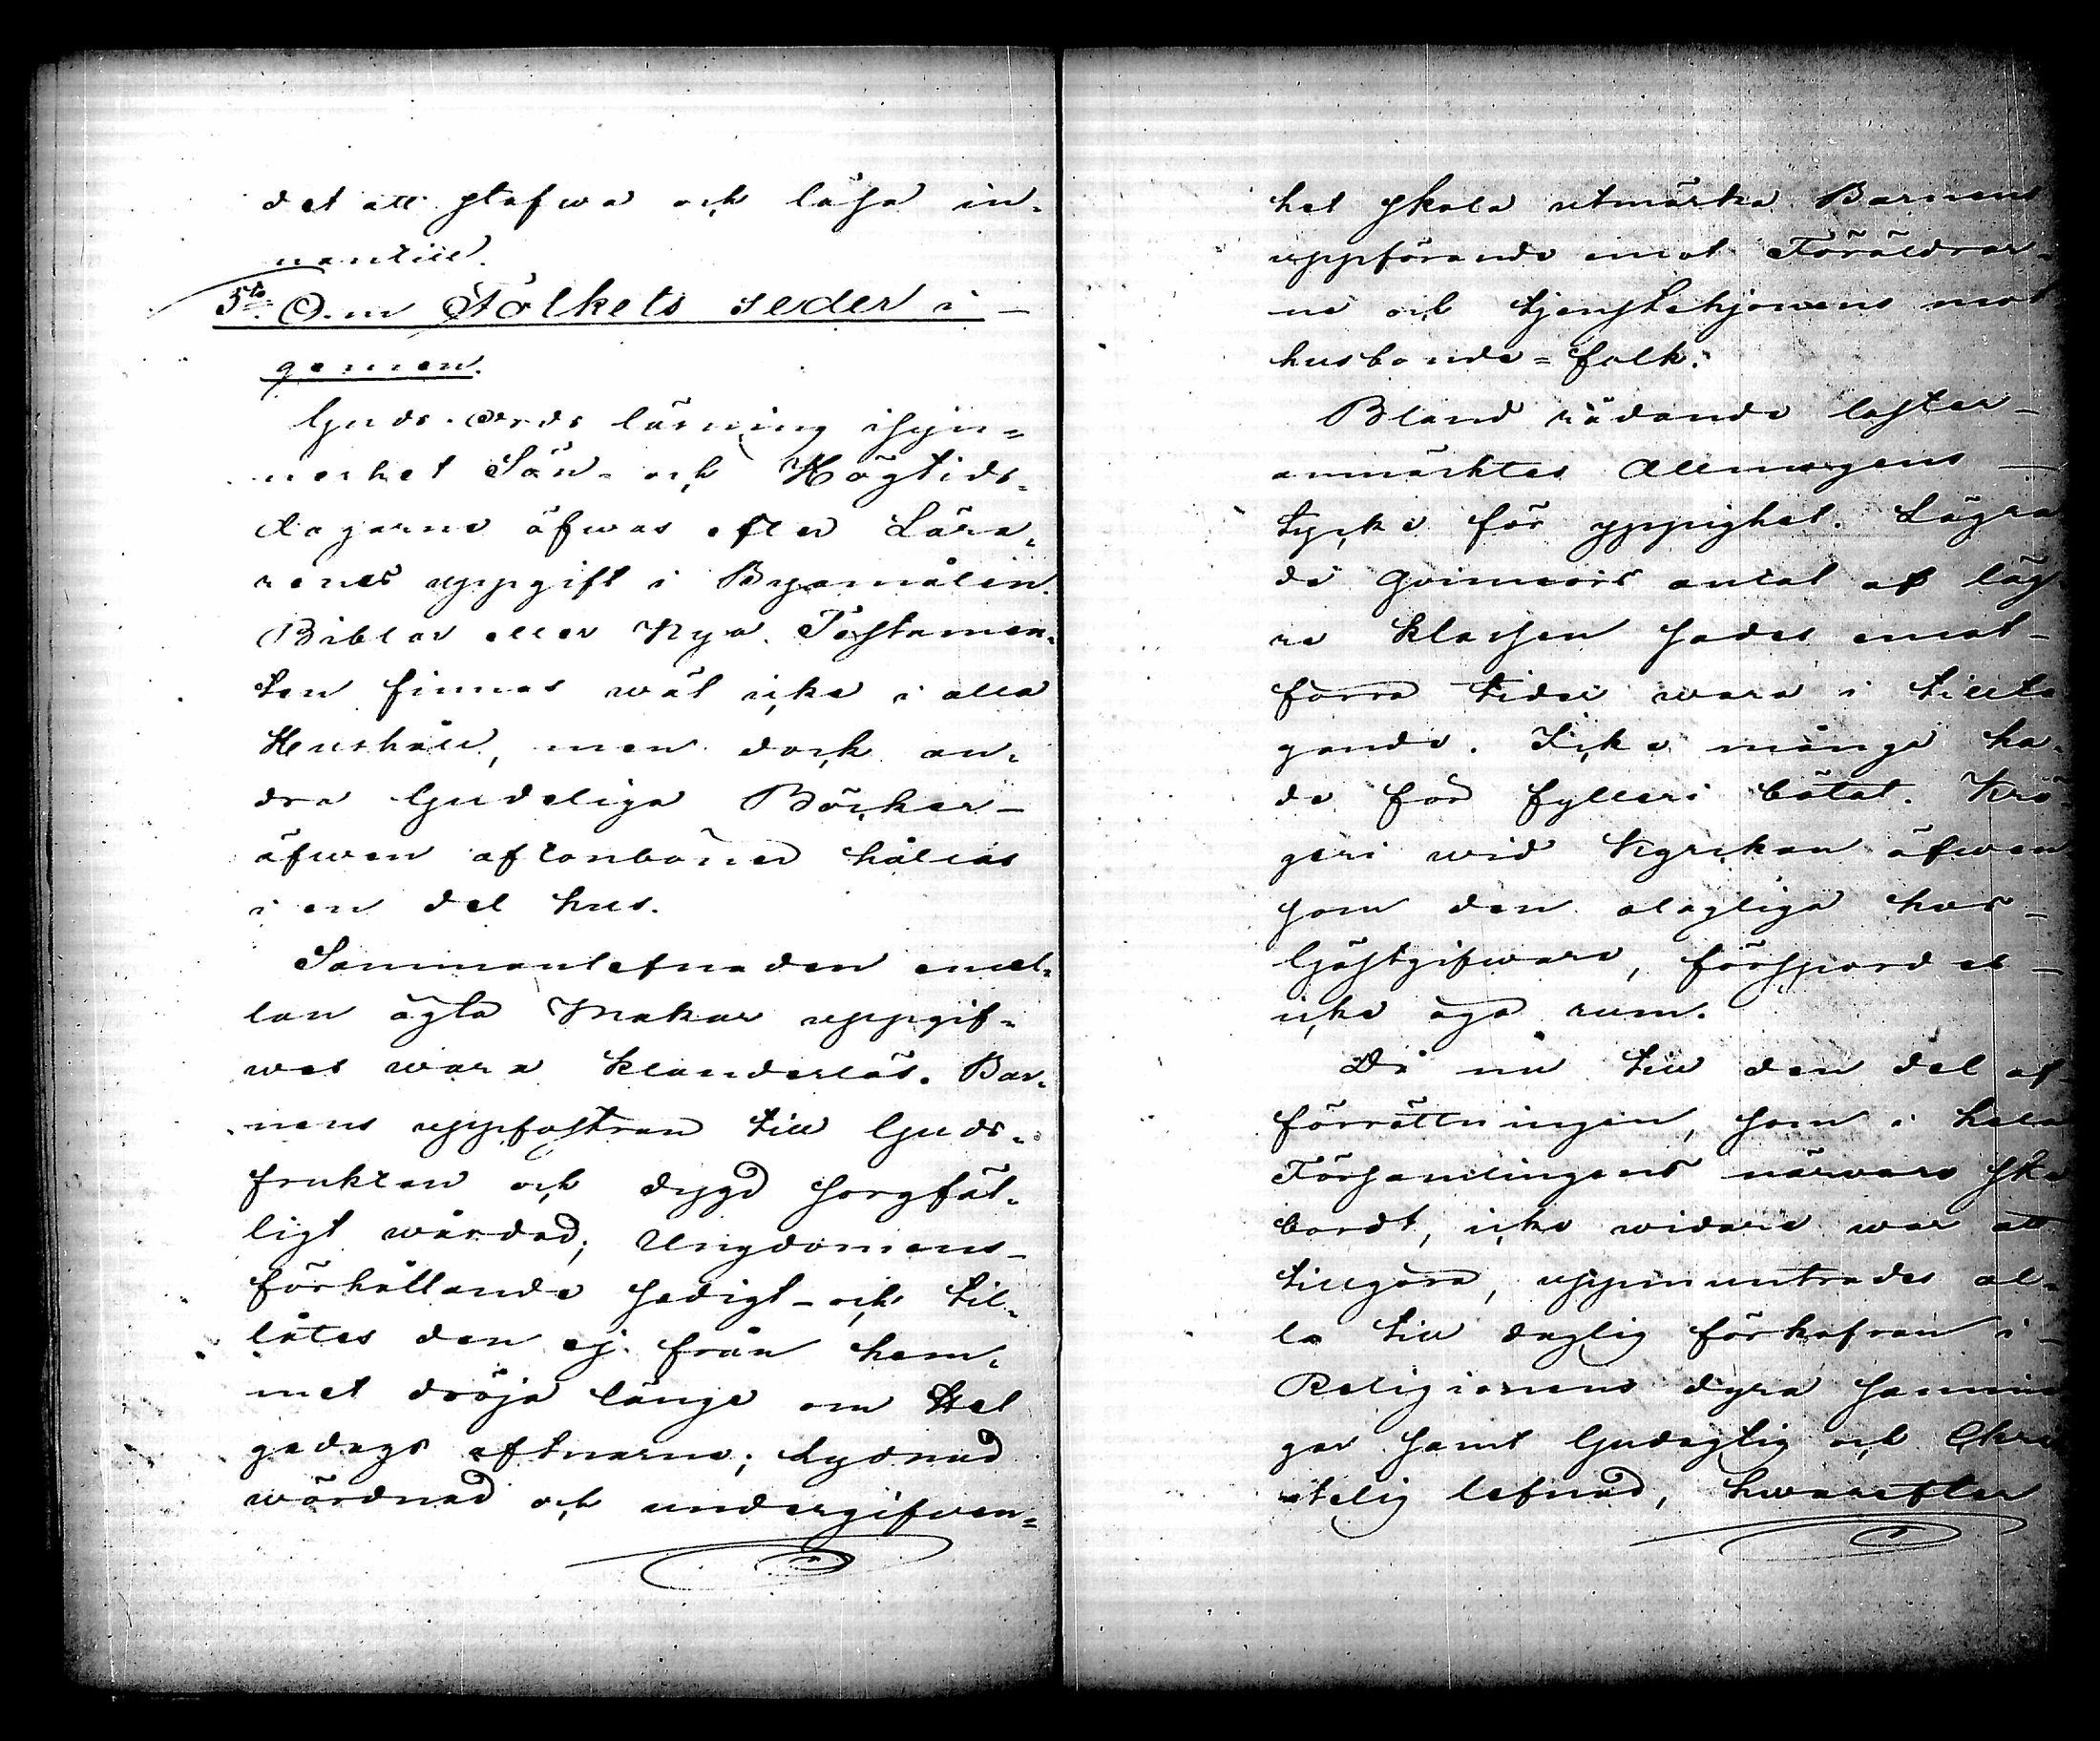 det att stafwa och läsa in-
nantill.
5to Om Folkets seder i
gemen.
Guds-ords läsning isyn-
nerhet Sön- och Högtids-
dagarne öfwas efter Lära-
renes uppgift i Byamålen.
Biblar eller Nya Testamen-
ten finnas wäl icke i alla
Hushåll, men dock an-
dra Gudeliga Böcker –
äfwen aftonböner hållas
i en del hus.
Sammanlefnaden emel-
lan ägta Makar uppgif-
wes wara klanderlös. Bar-
nens uppfostran till Guds-
fruktan och dygd sorgfäl-
ligt wårdad; Ungdomens
förhållande sedigt – och til-
låtes den ej från hem-
met dröja länge om Hel
gedags aftnarne; Lydnad
wördnad och undergifwen-
het skola utmärka Barnens
uppförande emot Föräldrar-
ne och tjenstehjonens mot
husbonde-folk.
Bland rådande laster –
anmärktes Allmogens –
tycke för yppighet. Lägra
de Qvinnors antal af läg-
re klassen sades emot –
förra tider wara i tillta
gande. Icke många ha-
de för fylleri bötat. Krö-
geri wid Kyrckan äfwen
som den olagliga hos –
Gästgifware, förspordes –
icke äga rum.
Då nu till den del af
förrättningen, som i hela
Församlingens närwaro ske
bordt, icke widare war att
tillgöra, uppmuntrades al-
la till daglig förkofran i –
Religionens dyra sannin
gar samt Gudagtig och Chri
stelig lefnad, hwarefter